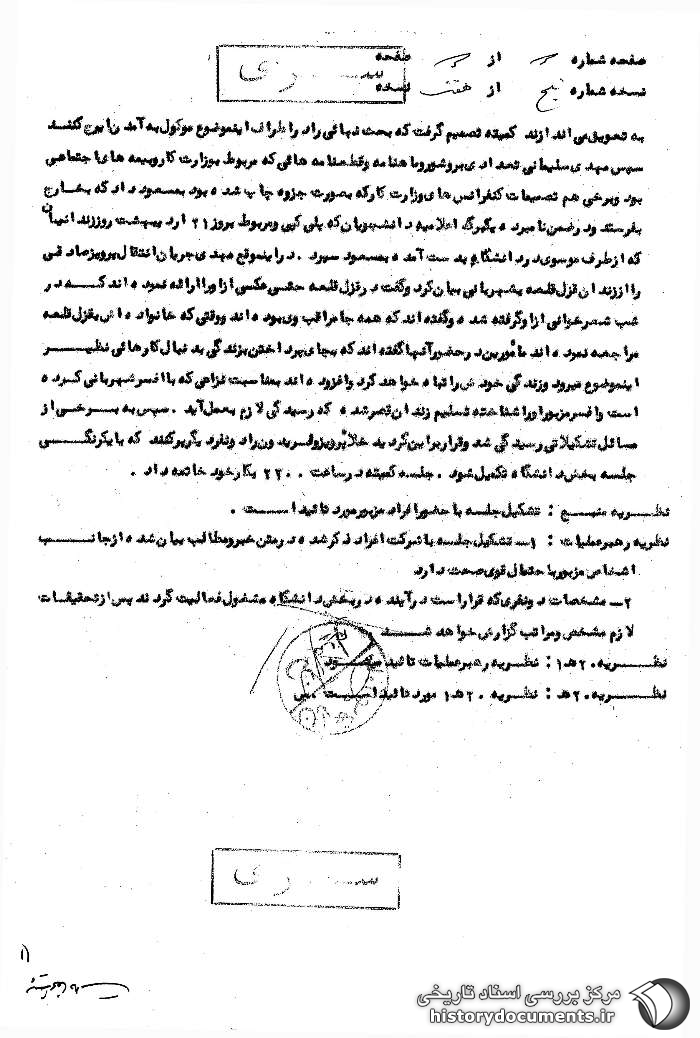 صفحه شماره از صفحه
نسخه شماره پنج از هفت نسخه
سری
به تعویق می اندازند کمیته تصمیم گرفت که بحث نهائی را در اطراف اینموضوع موکول به آمدن ایرج کنند
سپس مهدی سلیمانی تعدادی بروشور و ماهنامه و قطعنامه هائی که مربوط بوزارت کار و بیمه های اجتماعی
بود و برخی هم تصمیمات کنفرانس های وزارت کار که بصورت جزوه چاپ شده بود بمسعود داد که بخارج
بفرستد و در ضمن نامبرده یکبرگ اعلامیه دانشجویان که پلی کپی و مربوط بروز ۲۱ اردیبهشت روز زندانیان
که از طرف موسوی در دانشگاه بدست آمده بمسعود سپرد . در اینموقع مهدی جریان انتقال پرویز صادقی
را از زندان قزل قلعه بشهربانی بیان کرد و گفت در قزل قلعه حتی عکسی از او را ارائه نموده اند که در
شب شعرخوانی از او گرفته شده و گفته اند که همه جا مراقب وی بوده اند و وقتی که خانواده اش بقزل قلعه
مراجعه نموده اند مأمورین در حضور آنها گفته اند که بجای پرداختن بزندگی بدنبال کارهائی نظیر
اینموضوع میرود و زندگی خودش را تباه خواهد کرد و افزوده اند بمناسبت نزاعی که با افسر شهربانی کرده
است و افسر مزبور او را شناخته تسلیم زندان قصر شده که رسیدگی لازم بعمل آید . سپس به برخی از
مسائل تشکیلاتی رسیدگی شد و قرار بر این گردید خلا پرویز و فریدون را دو نفر دیگر پر کنند که با یکرنگی
جلسه بخش دانشگاه تکمیل شود . جلسه کمیته در ساعت ۲۲۰۰ بکار خود خاتمه داد .
نظریه منبع : تشکیل جلسه با حضور افراد مزبور مورد تائید است .
نظریه رهبر عملیات : ۱ـ تشکیل جلسه با شرکت افراد ذکر شده در متن خبر و مطالب بیان شده از جانب
اشخاص مزبور با احتمال قوی صحت دارد
۲ـ مشخصات دو نفری که قرار است در آینده در بخش دانشگاه مشغول فعالیت گردند پس از تحقیقات
لازم مشخص و مراتب گزارش خواهد شد
نظریه ۲۰هـ۱ : نظریه رهبر عملیات تائید میشود
نظریه ۲۰هـ : نظریه ۲۰هـ۱ مورد تائید است .
سری
مرکز بررسی اسناد تاریخی
historydocuments.ir